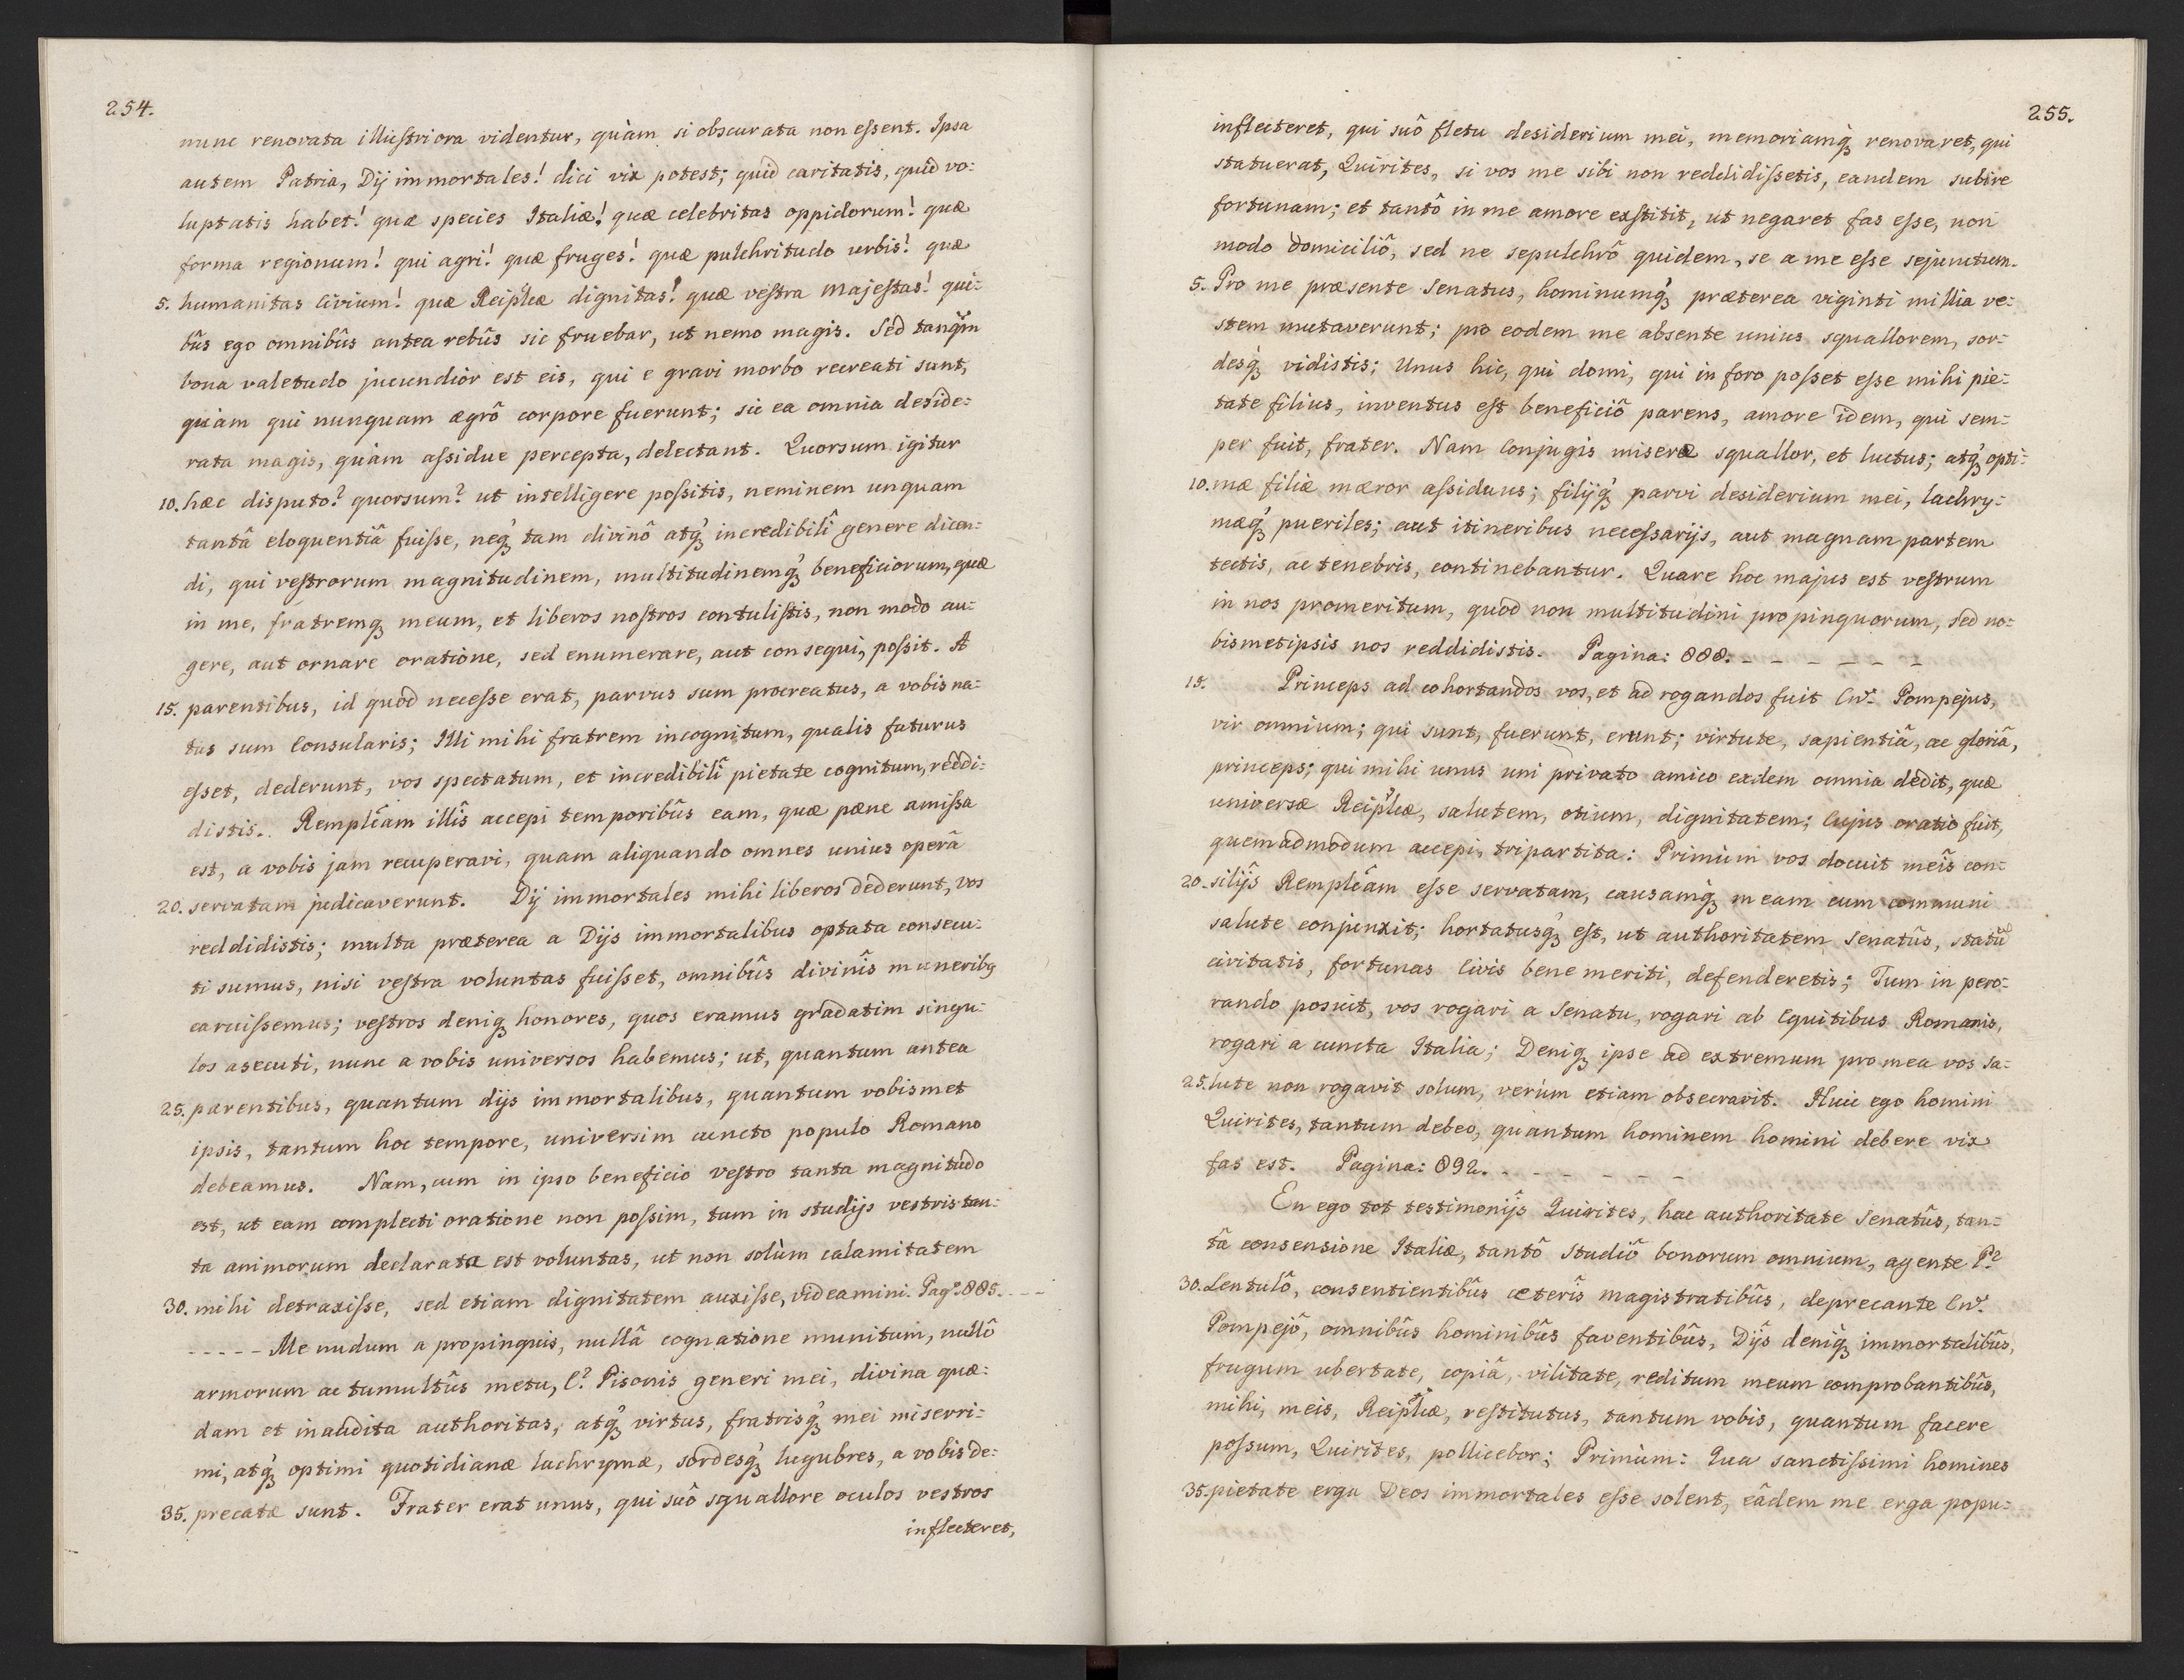 254.
nunc renovata illustriora videntur, quàm si obscurata non essent. Ipsa
autem Patria, Dij immortales! dici vix potest; quid caritatis, quid vo:
luptatis habet! quæ species Italiæ! quæ celebritas oppidorum! quæ
forma regionum! qui agri! quæ fruges! quæ pulchritudo urbis! quæ
5. humanitas Civium! quæ Reiplicæ dignitas! quæ vestra Majestas! qui:
bûs ego omnibûs antea rebûs sic fruebar, ut nemo magis. Sed tanqm
bona valetudo jucundior est eis, qui e gravi morbo recreati sunt,
quàm qui nunquam ægrô corpore fuerunt; sic ea omnia deside:
rata magis, quàm assidue percepta, delectant. Quorsum igitur
10. hæc disputo? quorsum? ut intelligere possitis, neminem unquam
tantâ eloquentiâ fuisse, neq́ꝫ tam divinô atq́ꝫ incredibilî genere dicen:
di, qui vestrorum magnitudinem, multitudinemq́ꝫ beneficiorum, quæ
in me, fratremqꝫ meum, et liberos nostros contulistis, non modo au:
gere, aut ornare oratione, sed enumerare, aut consequi, possit. A
15. parentibus, id quod necesse erat, parvus sum procreatus, a vobis na:
tus sum Consularis; Illi mihi fratrem incognitum, qualis futurus
esset, dederunt, vos spectatum, et incredibilî pietate cognitum, reddi:
distis. Remplicam illîs accepi temporibûs eam, quæ pæne amissa
est, a vobis jam recuperavi, quam aliquando omnes unius operâ
20. servatam judicaverunt. Dij immortales mihi liberos dederunt, vos
reddidistis; multa præterea a Dijs immortalibus optata consecu:
ti sumus, nisi vestra voluntas fuisset, omnibûs divinîs muneribq
caruissemus; vestros deniqꝫ honores, quos eramus gradatim singu:
los asecuti, nunc a vobis universos habemus; ut, quantum antea
25. parentibus, quantum dijs immortalibus, quantum vobismet
ipsis, tantum hoc tempore, universim cuncto populo Romano
debeamus. Nam, cum in ipso beneficio vestro tanta magnitudo
est, ut eam complecti oratione non possim, tum in studijs vestris tan:
ta animorum declarata est voluntas, ut non solùm calamitatem
30. mihi detraxisse, sed etiam dignitatem auxisse, videamini. Pag: 885. - - -
- - - - - Me nudum a propinquis, nullâ cognatione munitum, nullô
armorum ac tumultûs metu, C? Pisonis generi mei, divina quæ:
dam et inaudita authoritas, atq́ꝫ virtus, fratrisq́ꝫ mei miserri:
mi, atq́ꝫ optimi quotidianæ lachrymæ, sordesq́ꝫ lugubres, a vobis de:
35. precatæ sunt. Frater erat unus, qui suô squallore oculos vestros
inflecteret,
255.
inflecteret, qui suô fletu desiderium mei, memoriamq́ꝫ renovaret, qui
statuerat, Quirites, si vos me sibi non reddidissetis, eandem subire
fortunam; et tantô in me amore exstitit, ut negaret fas esse, non
modo domiciliô, sed ne sepulchrô quidem, se a me esse sejunctum.
5. Pro me præsente Senatus, hominumq́ꝫ præterea viginti millia ve:
stem mutaverunt; pro eodem me absente unius squallorem, sor:
desq́ꝫ vidistis; Unus hic, qui domi, qui in foro posset esse mihi pie:
tate filius, inventus est beneficiô parens, amore idem, qui sem:
per fuit, frater. Nam Conjugis miseræ squallor, et luctus; atq́ꝫ opti:
10. mæ filiæ mæror assiduus; filijq́ꝫ parvi desiderium mei, lachry:
mæq́ꝫ pueriles; aut itineribus necessarijs, aut magnam partem
tectis, ac tenebris, continebantur. Quare hoc majus est vestrum
in nos promeritum, quod non multitudini propinquorum, sed no:
bismetipsis nos reddidistis. Pagina: 888. - - - - - -
15. Princeps ad cohortandos vos, et ad rogandos fuit Cn. Pompejus,
vir omnium; qui sunt, fuerunt, erunt; virtute, sapientiâ, ac gloriâ,
princeps; qui mihi unus uni privato amico eadem omnia dedit, quæ
universæ Reiplicæ, salutem, otium, dignitatem; Cujus oratio fuit,
quemadmodum accepi, tripartita: Primùm vos docuit meîs con:
20. silijs Remplicam esse servatam, causamq́ꝫ meam cum communi
salute conjunxit; hortatusq́ꝫ est, ut authoritatem Senatûs, statũ
civitatis, fortunas Civis bene meriti, defenderetis; Tum in pero:
rando posuit, vos rogari a Senatu, rogari ab Equitibus Romanis,
rogari a cuncta Italia; Deniqꝫ ipse ad extremum pro mea vos sa:
25. lute non rogavit solum, verùm etiam obsecravit. Huic ego homini
Quirites, tantum debeo, quantum hominem homini debere vix
fas est. Pagina: 892. - - - - - -
En ego tot testimonijs Quirites, hac authoritate Senatûs, tan:
tâ consensione Italiæ, tantô studiô bonorum omnium, agente P?
30. Lentulô, consentientibûs cæterîs magistratibûs, deprecante Cn.
Pompejô, omnibûs hominibûs faventibûs, Dijs deniq́ꝫ immortalibûs,
frugum ubertate, copiâ, vilitate, reditum meum comprobantibûs,
mihi, meis, Reiplicæ, restitutus, tantum vobis, quantum facere
possum, Quirites, pollicebor; Primùm: Qua sanctissimi homines
35. pietate erga Deos immortales esse solent, eâdem me erga popu: